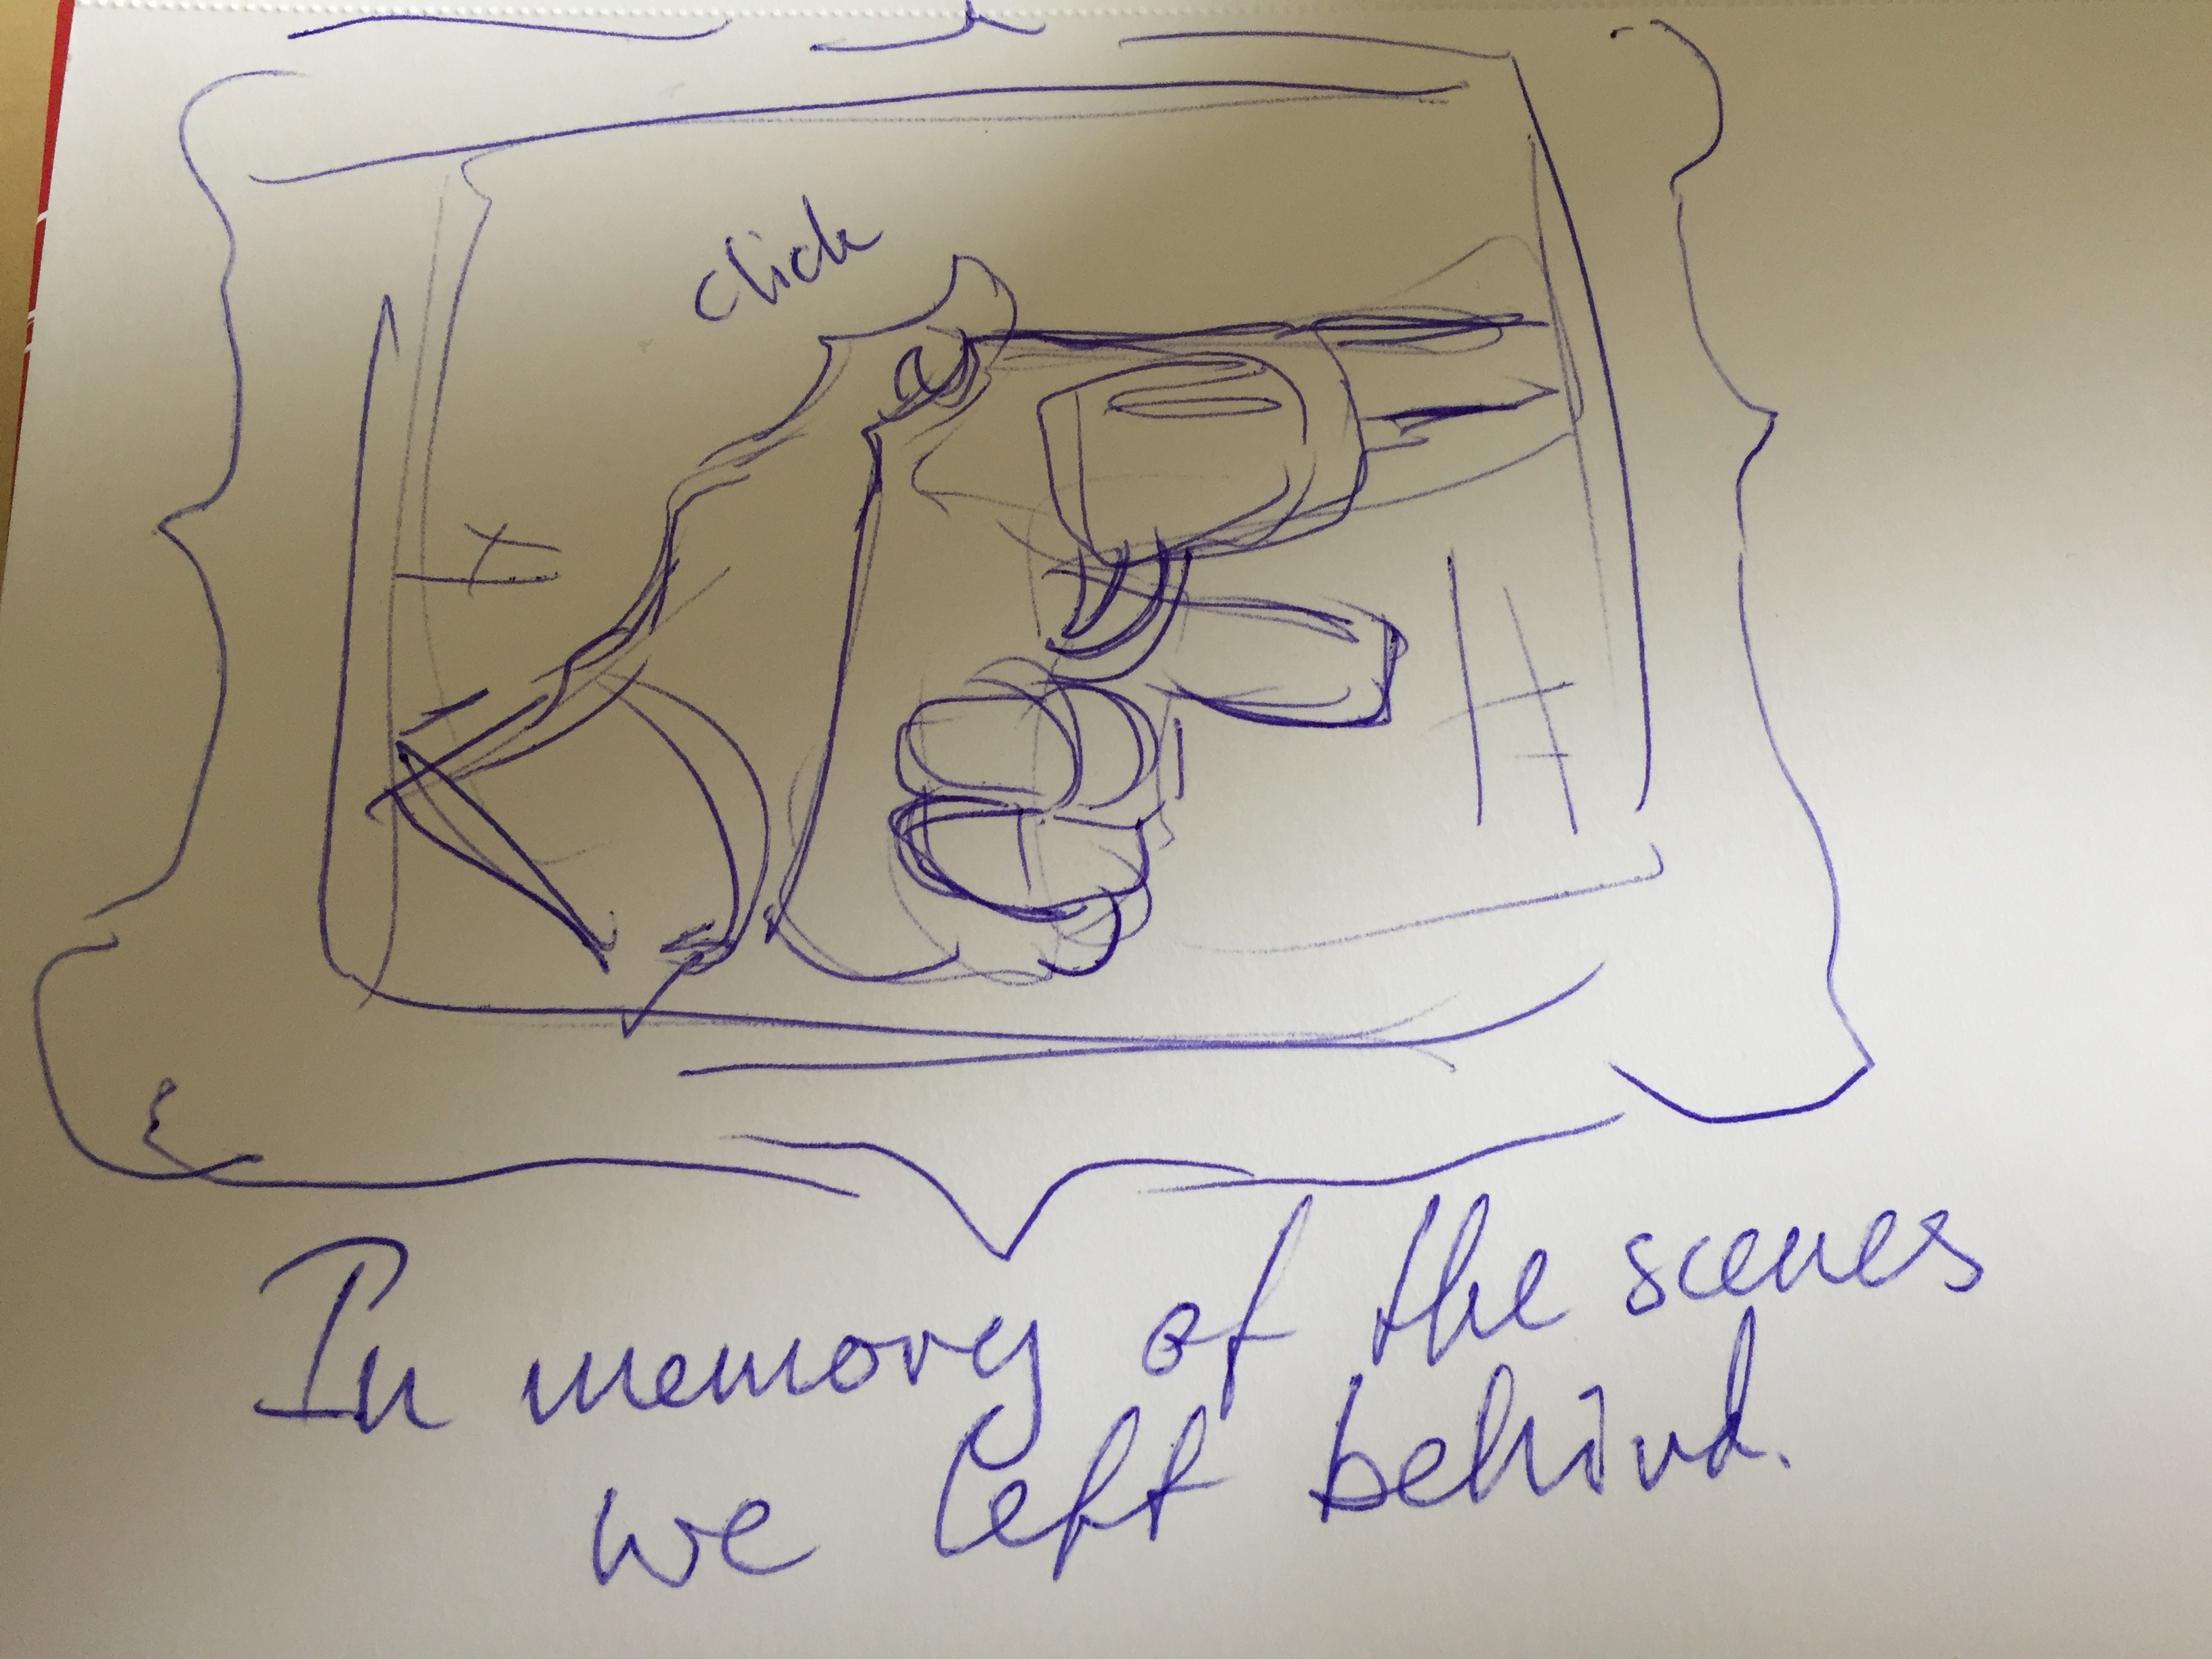 click
In memory of the scenes
we left behind.